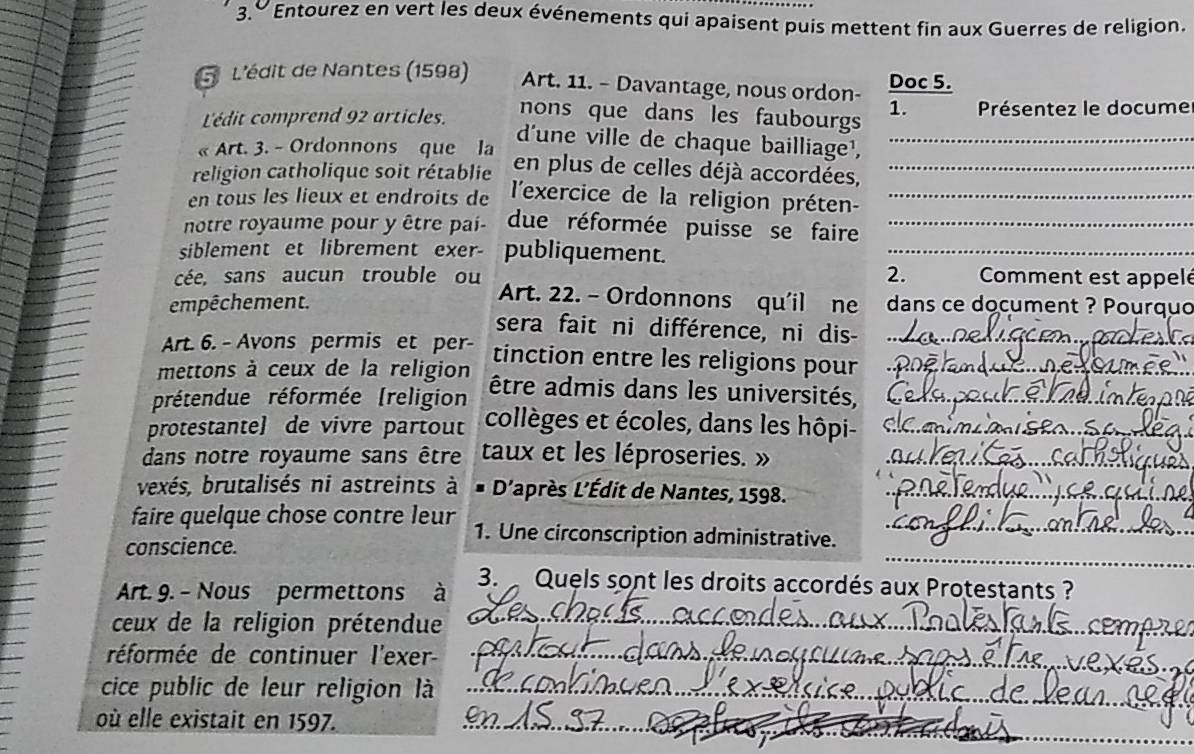 3. Entourez en vert les deux événements qui apaisent puis mettent fin aux Guerres de religion.
5 L'édit de Nantes (1598)
L'édit comprend 92 articles.
« Art. 3. - Ordonnons que la
religion catholique soit rétablie
en tous les lieux et endroits de
notre royaume pour y être pai-
siblement et librement exer-
cée, sans aucun trouble ou
empêchement.
Art. 6. - Avons permis et per-
mettons à ceux de la religion
prétendue réformée [religion
protestante] de vivre partout
dans notre royaume sans être
vexés, brutalisés ni astreints à
faire quelque chose contre leur
conscience.
Art. 9. - Nous permettons à
ceux de la religion prétendue
réformée de continuer l'exer-
cice public de leur religion là
où elle existait en 1597.
Art. 11. - Davantage, nous ordon-
nons que dans les faubourgs
d'une ville de chaque bailliage¹,
en plus de celles déjà accordées,
l'exercice de la religion préten-
due réformée puisse se faire
publiquement.
Art. 22. - Ordonnons qu'il ne
sera fait ni différence, ni dis-
tinction entre les religions pour
être admis dans les universités,
collèges et écoles, dans les hôpi-
taux et les léproseries. »
▪ D'après L'Édit de Nantes, 1598.
1. Une circonscription administrative.
Doc 5.
1. Présentez le docume
2. Comment est appelé
dans ce document ? Pourquo
La religion protesta
prétendue réformée"
Cela peut être interpré
autorités catholiques
"prétendue", ce qui
conflits entre les
3. Quels sont les droits accordés aux Protestants ?
Les accordés aux Protestants
partout dans le royaume sans être vexés
de continuer l'exercice public de leur
en 1597